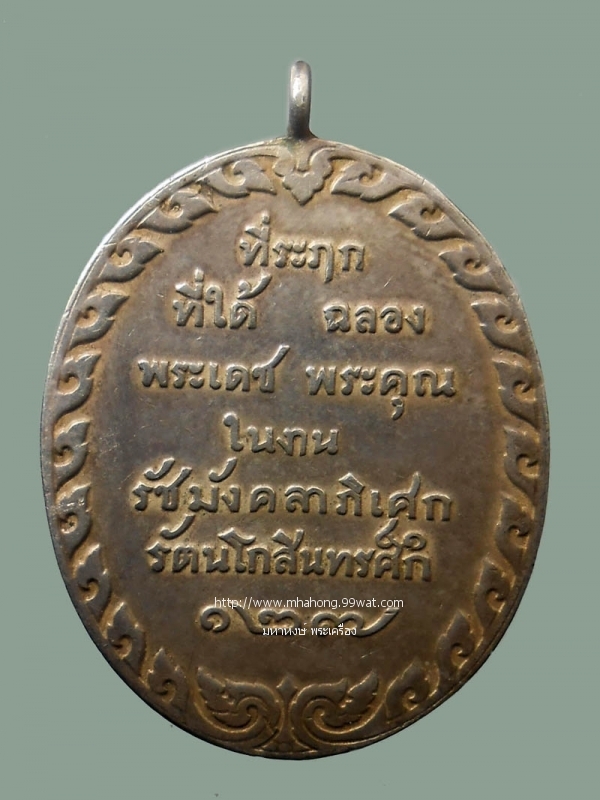 ที่ระฦก
ที่ได้ ฉลอง
พระเดช พระคุณ
ในงาน
รัชมังคลาภิเศก
รัตนโกสินทรศ๊ก
http://www.mhahong.99wat.com
๑๒๗
มหาหงษ์ พระเครื่อง